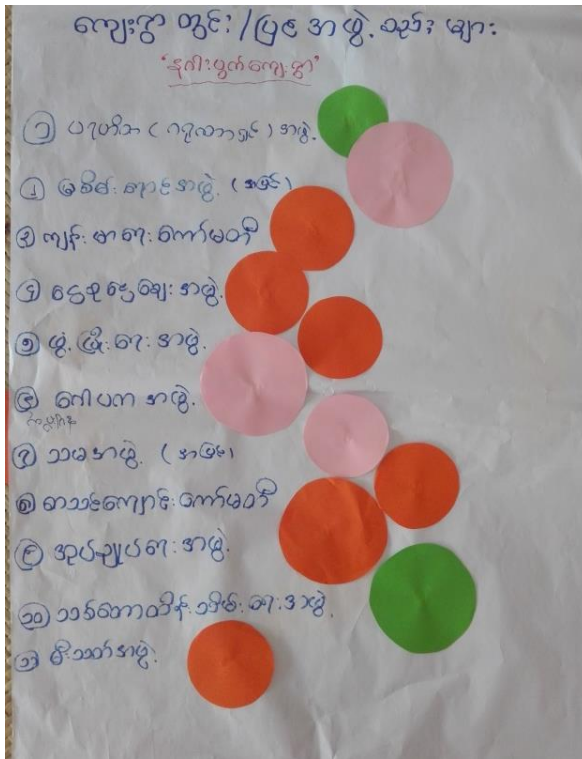 ကျေးရွာ တွင်း/ပြင် အဖွဲ့အစည်း များ
"နဂါးပွက်ကျေးရွာ"
၁ ပရဟိတ ( ) အဖွဲ့
၂ မြစိမ်းရောင် အဖွဲ့ (အပြင်)
၃ ကျန်းမာရေး ကော်မတီ
၄ ငွေစုငွေချေး အဖွဲ့
၅ ဖွံ့ဖြိုးရေး အဖွဲ့
၆ ဂေါပက အဖွဲ့
၇ သမအဖွဲ့ (အပြင်)
၈ စာသင်ကျောင်း ကော်မတီ
၉ အုပ်ချုပ်ရေး အဖွဲ့
၁၀ သစ်တောထိန်းသိမ်းရေးအဖွဲ့
၁၁ မီးသတ်အဖွဲ့